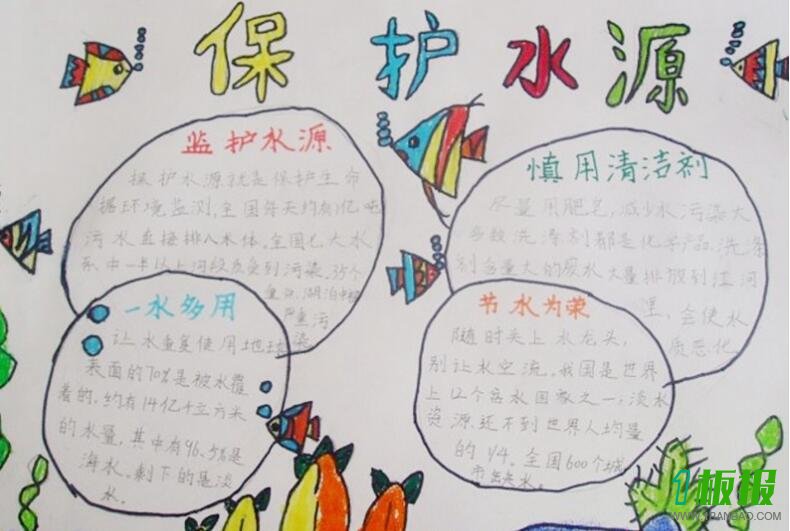 保护水源
监护水源
保护水源就是保护生命
据环境监测,全国每天约有1亿吨
污水直接排入水体。全国七大水
系中一半以上河段水质受到污染。35个
重点湖泊中
严重污
染
慎用清洁剂
尽量用肥皂,减少水污染大
多数洗涤剂都是化学产品,洗涤
剂含量大的废水大量排放到江河
里,会使水
质恶化
一水多用
让水重复使用地球
表面的70%是被水覆
着的,约有14亿千立方米
的水量,其中有96.5%是
海水。剩下的是淡
水。
节水为荣
随时关上水龙头,
别让水空流。我国是世界
上12个贫水国家之一,淡水
资源还不到世界人均量
的1/4。全国600个城
市缺水。
1板报
WWW.1BANBAO.COM